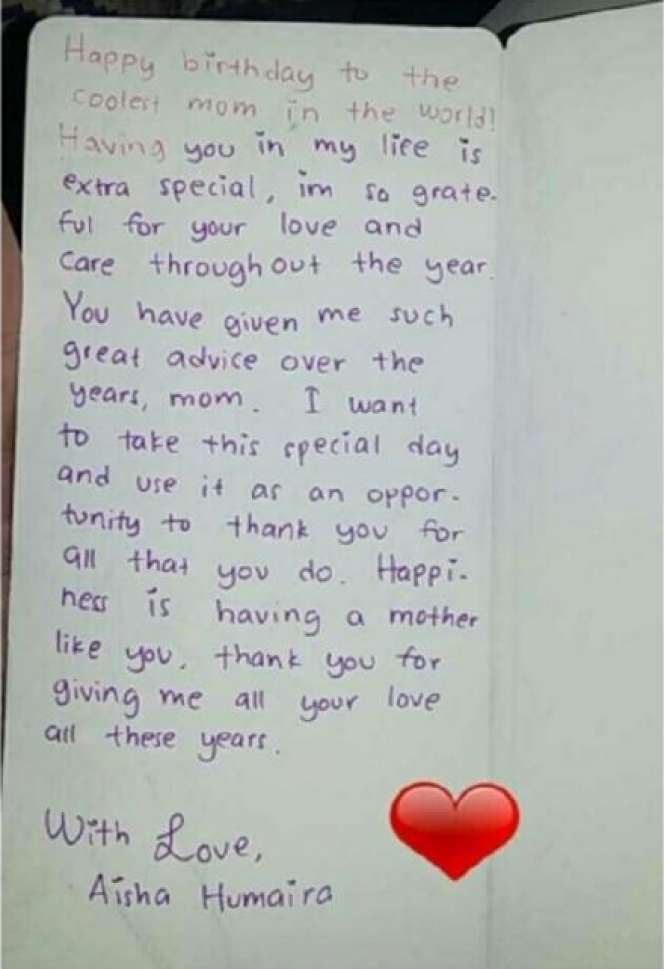 Happy birthday to the
coolest mom in the world!
Having you in my life is
extra special, im so grate-
ful for your love and
care throughout the year.
You have given me such
great advice over the
years, mom. I want
to take this special day
and use it as an oppor-
tunity to thank you for
all that you do. Happi-
ness is having a mother
like you, thank you for
giving me all your love
all these years.
With Love,
Aisha Humaira